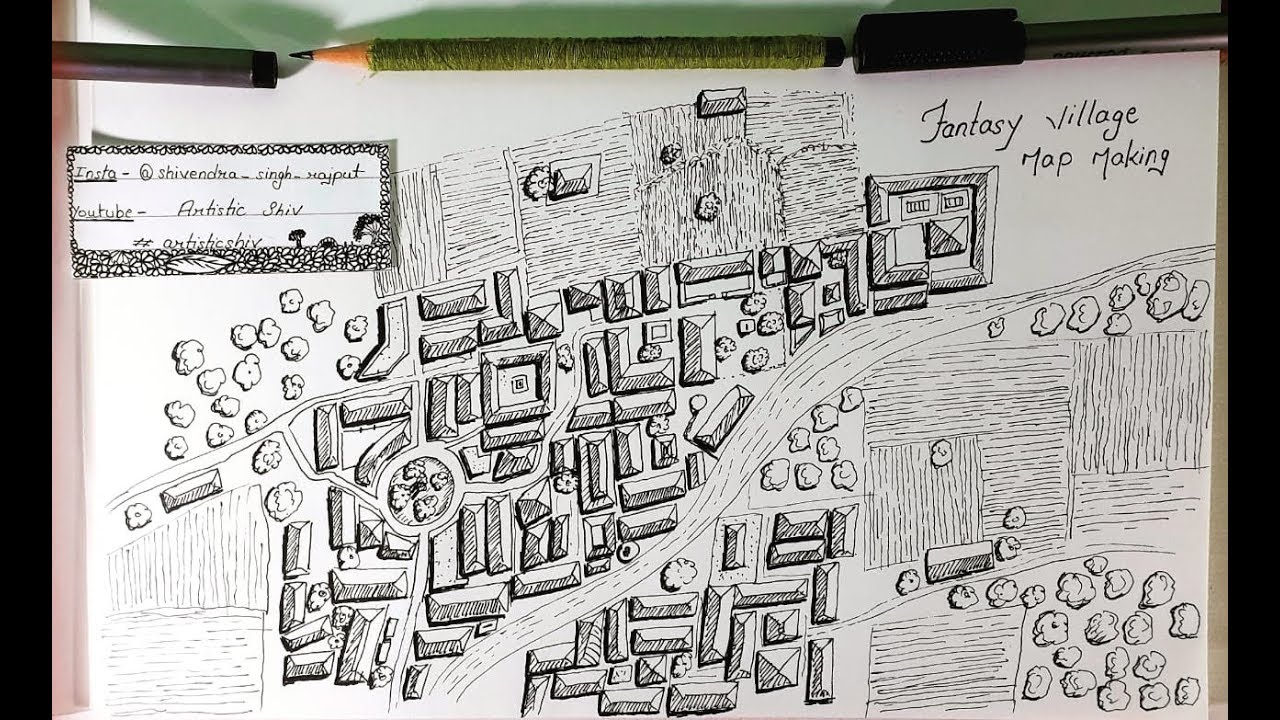 Fantasy Village
Map Making
Insta - @shivendra_singh_rajput
Youtube - Artistic Shiv
# artisticshiv